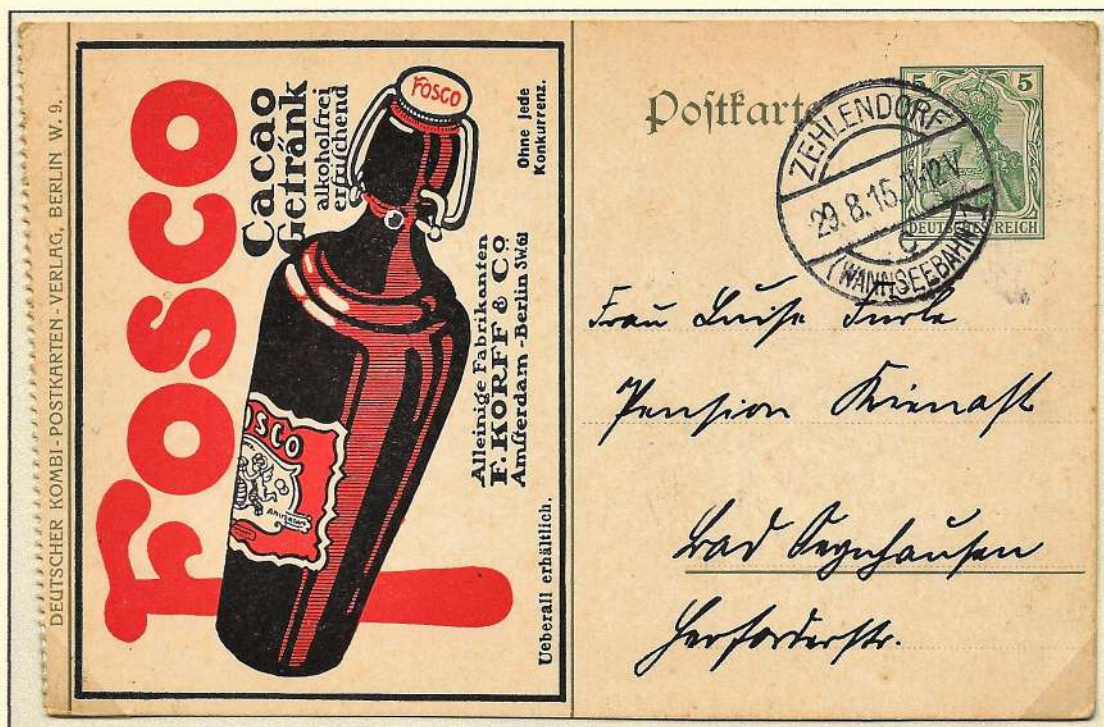 DEUTSCHER KOMBI-POSTKARTEN-VERLAG, BERLIN W. 9.
FOSCO
Cacao
Getränk
alkoholfrei
erfrischend
FOSCO
Ohne jede
Konkurrenz.
OSCO
Amsterdam
Alleinige Fabrikanten
F. KORFF & Co
Amsterdam-Berlin SW.61
Ueberall erhältlich.
Postkarte
5 5
DEUTSCHES REICH
ZEHLENDORF
29.8.15.11-12V.
c
(WANNSEEBAHN)
Frau Luise
Pension Kienast
Bad Oeynhausen
Herforderstr.